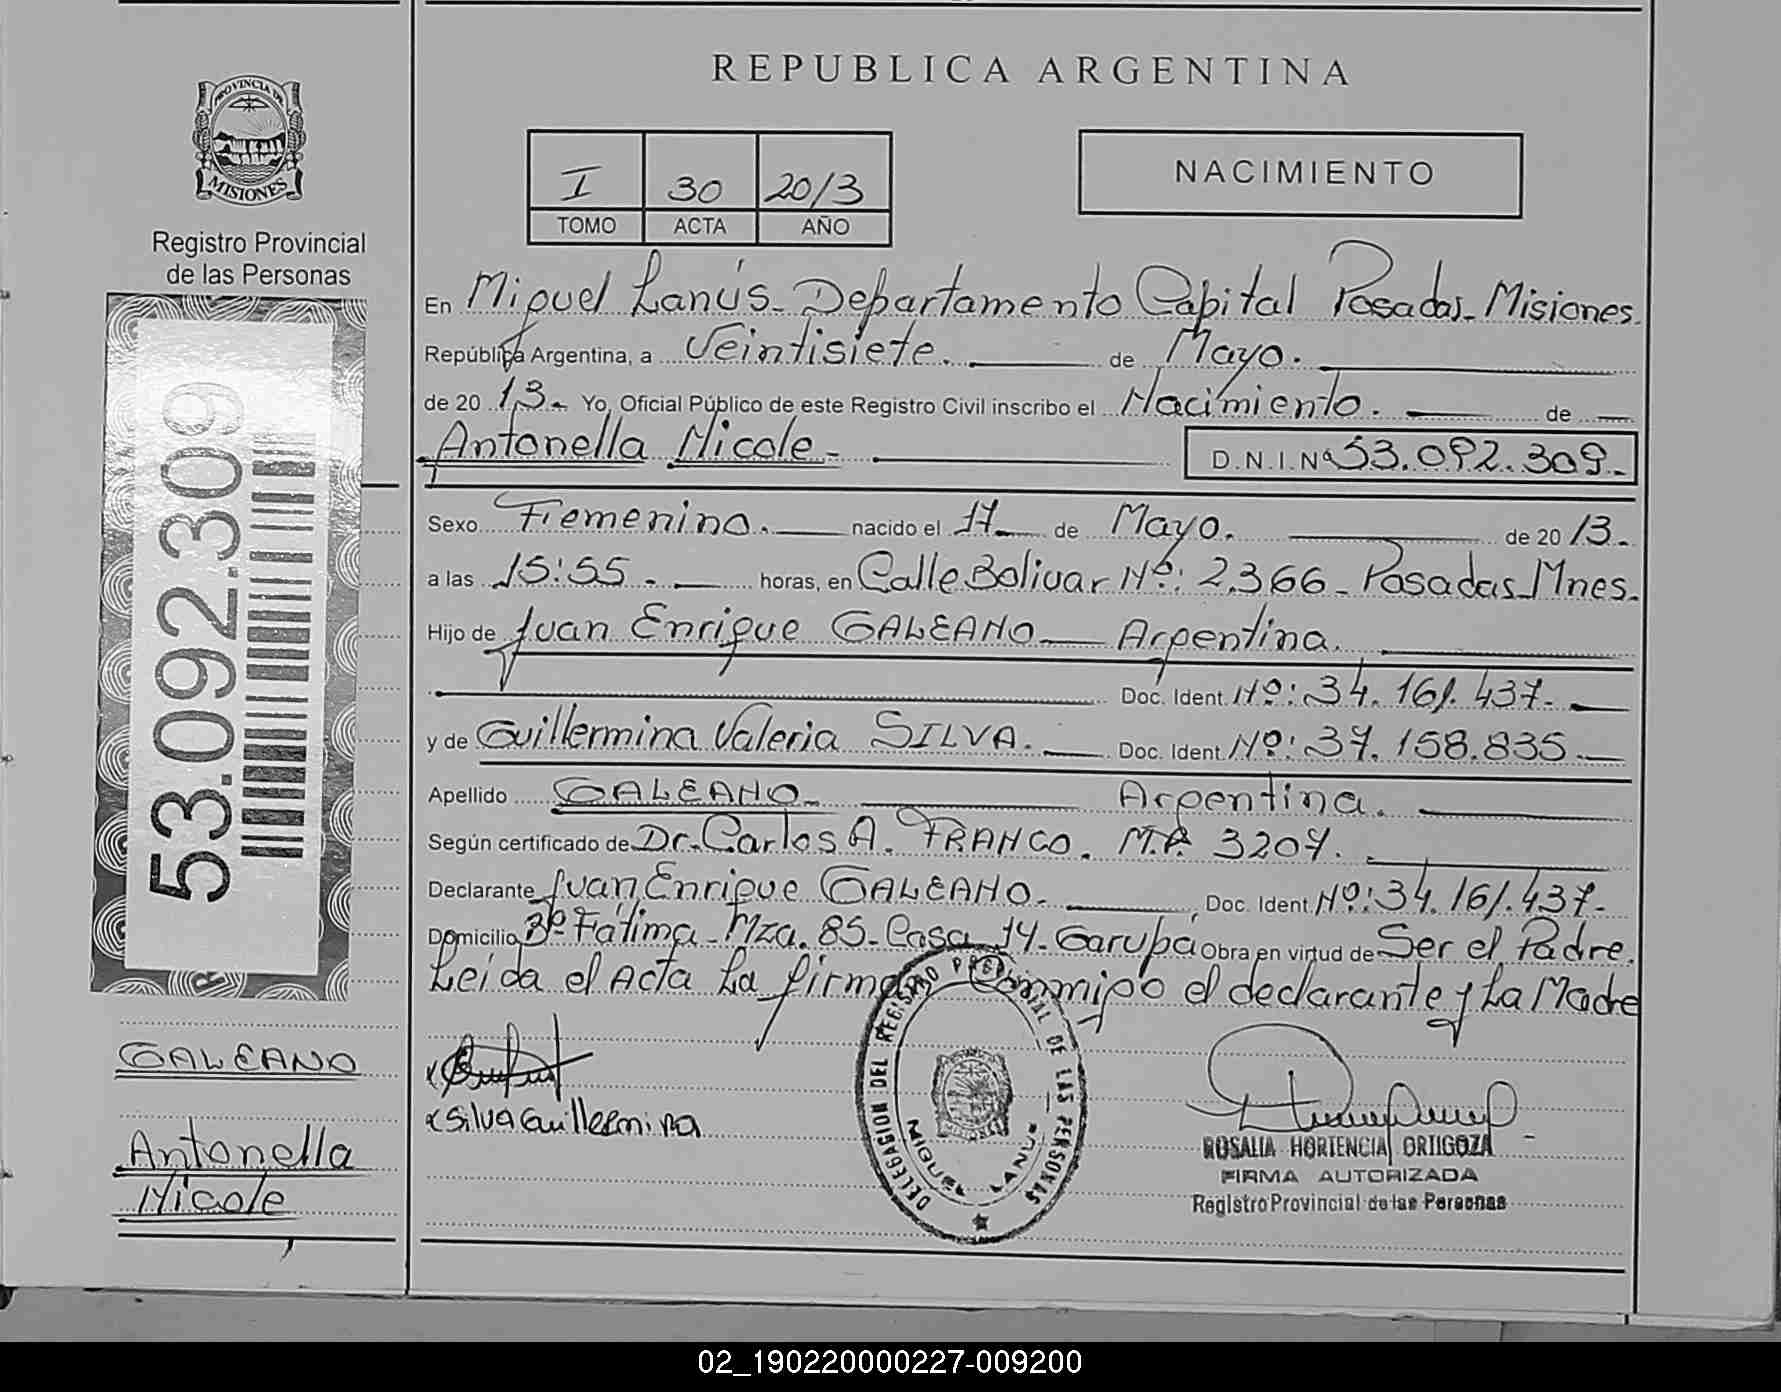 REPUBLICA ARGENTINA
PROVINCIA DE
MISIONES
Registro Provincial
de las Personas
I 30 2013
TOMO ACTA AÑO
NACIMIENTO
En Miguel Lanús - Departamento Capital Posadas - Misiones.
República Argentina, a Veintisiete. de Mayo.
de 20 13. Yo, Oficial Público de este Registro Civil inscribo el Nacimiento. de
Antonella Nicole - D.N.I.Nº 53.092.309.-
Sexo Femenino. nacido el 17 de Mayo. de 20 13.
a las 15:55. horas, en Calle Bolivar Nº: 2.366 - Posadas Mnes.
Hijo de Juan Enrique GALEANO Argentina.
Doc. Ident. Nº: 34.161.437.
y de Guillermina Valeria SILVA. Doc. Ident. Nº: 37.158.835
Apellido GALEANO Argentina.
Según certificado de Dr. Carlos A. FRANCO. M.P. 3207.
Declarante Juan Enrique GALEANO. Doc. Ident. Nº: 34.161.437-
Domicilio Bº Fátima - Mza. 85 - Casa 14 - Garupá Obra en virtud de Ser el Padre.
Leída el Acta La firma Conmigo el declarante y La Madre
53.092.309
GALEANO
Antonella
Nicole
x Silva Guillermina
DELEGACION DEL REGISTRO PROVINCIAL DE LAS PERSONAS
MIGUEL LANUS
ROSALIA HORTENCIA ORTIGOZA
FIRMA AUTORIZADA
Registro Provincial de las Personas
02_190220000227-009200